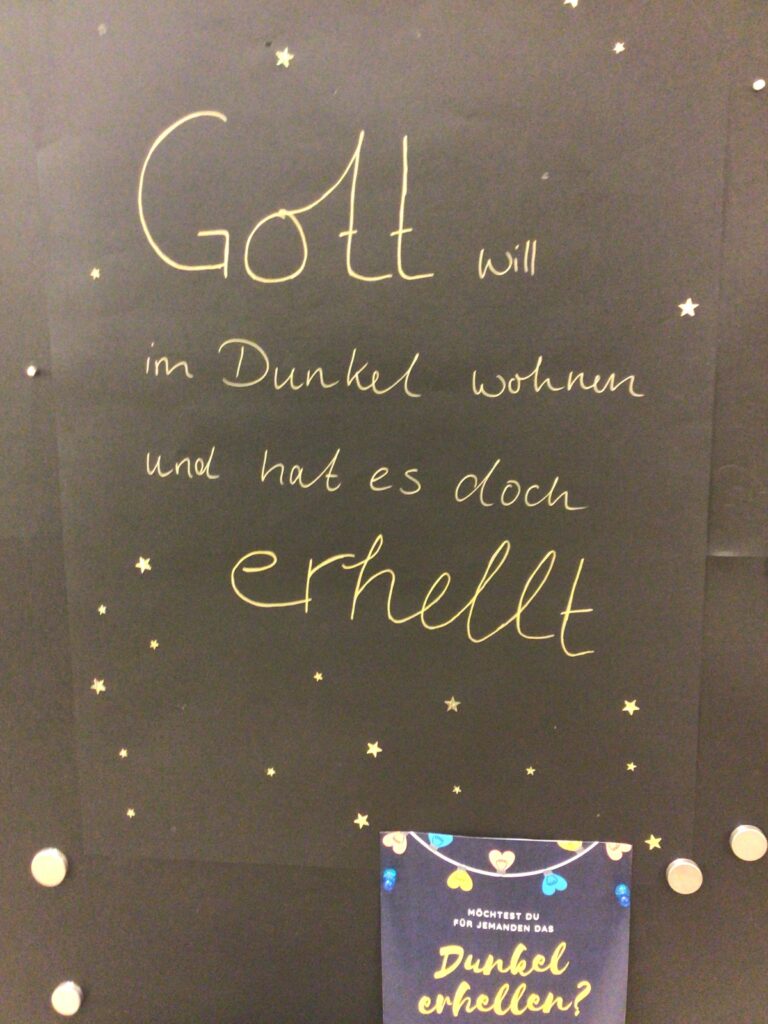 Gott will
im Dunkel wohnen
und hat es doch
erhellt
MÖCHTEST DU
FÜR JEMANDEN DAS
Dunkel
erhellen?